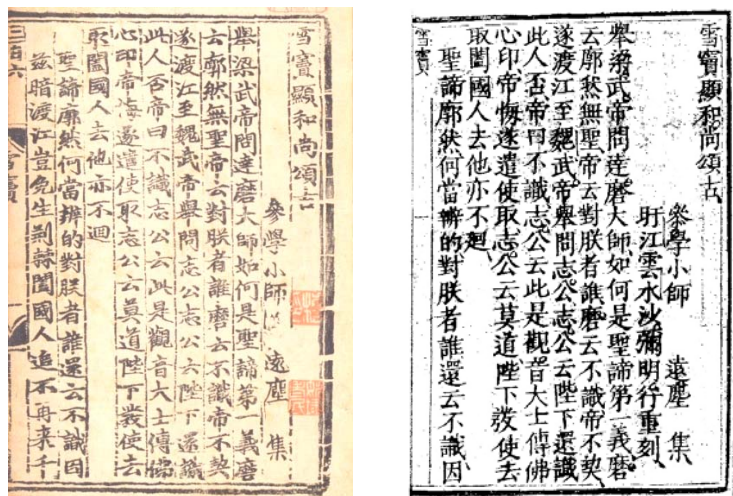 雪竇顯和尚頌古
參學小師 遠塵 集
舉梁武帝問達磨大師如何是聖諦第一義磨
云廓然無聖帝云對朕者誰磨云不識帝不契
遂渡江至魏武帝舉問志公志公云陛下還識
此人否帝曰不識志公云此是觀音大士傳佛
心印帝悔遂遣使取志公云莫道陛下發使去
取闔國人去他亦不迴
聖諦廓然何當辨的對朕者誰還云不識因
茲暗渡江豈免生荊棘闔國人追不再来千
三百六
雪竇顯和尚頌古
參學小師 遠塵 集
盱江雲水沙彌明行重刻
舉梁武帝問達磨大師如何是聖諦第一義磨
云廓然無聖帝云對朕者誰磨云不識帝不契
遂渡江至魏武帝舉問志公志公云陛下還識
此人否帝曰不識志公云此是觀音大士傳佛
心印帝悔遂遣使取志公云莫道陛下發使去
取闔國人去他亦不迴
聖諦廓然何當辨的對朕者誰還云不識因
雪竇